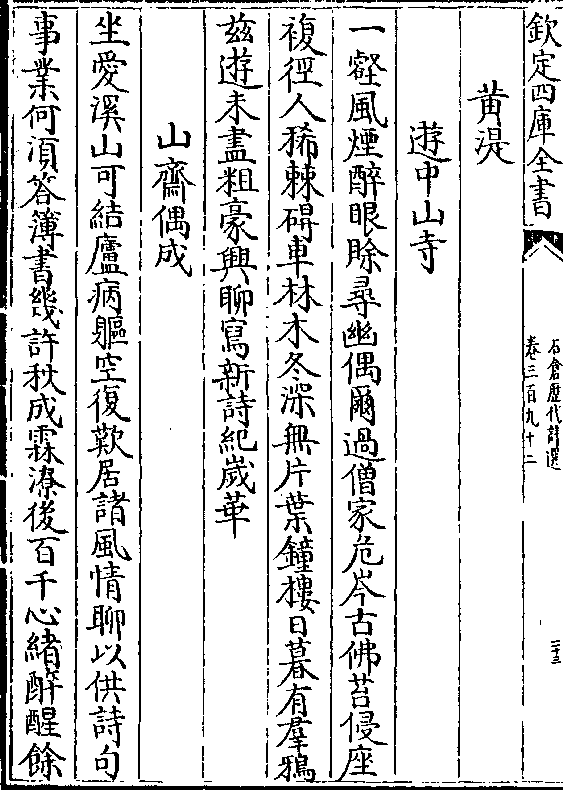 欽定四庫全書
石倉歷代詩選
卷三百九十二
三三
黄湜
遊中山寺
一壑風煙醉眼賖尋幽偶爾過僧家危岑古佛苔侵座
複徑人稀棘碍車林木冬深無片葉鐘樓日暮有羣鴉
兹遊未盡粗豪興聊寫新詩紀嵗華
山齋偶成
坐愛溪山可結廬病軀空復歎居諸風情聊以供詩句
事業何須答簿書幾許秋成霖潦後百千心緒醉醒餘